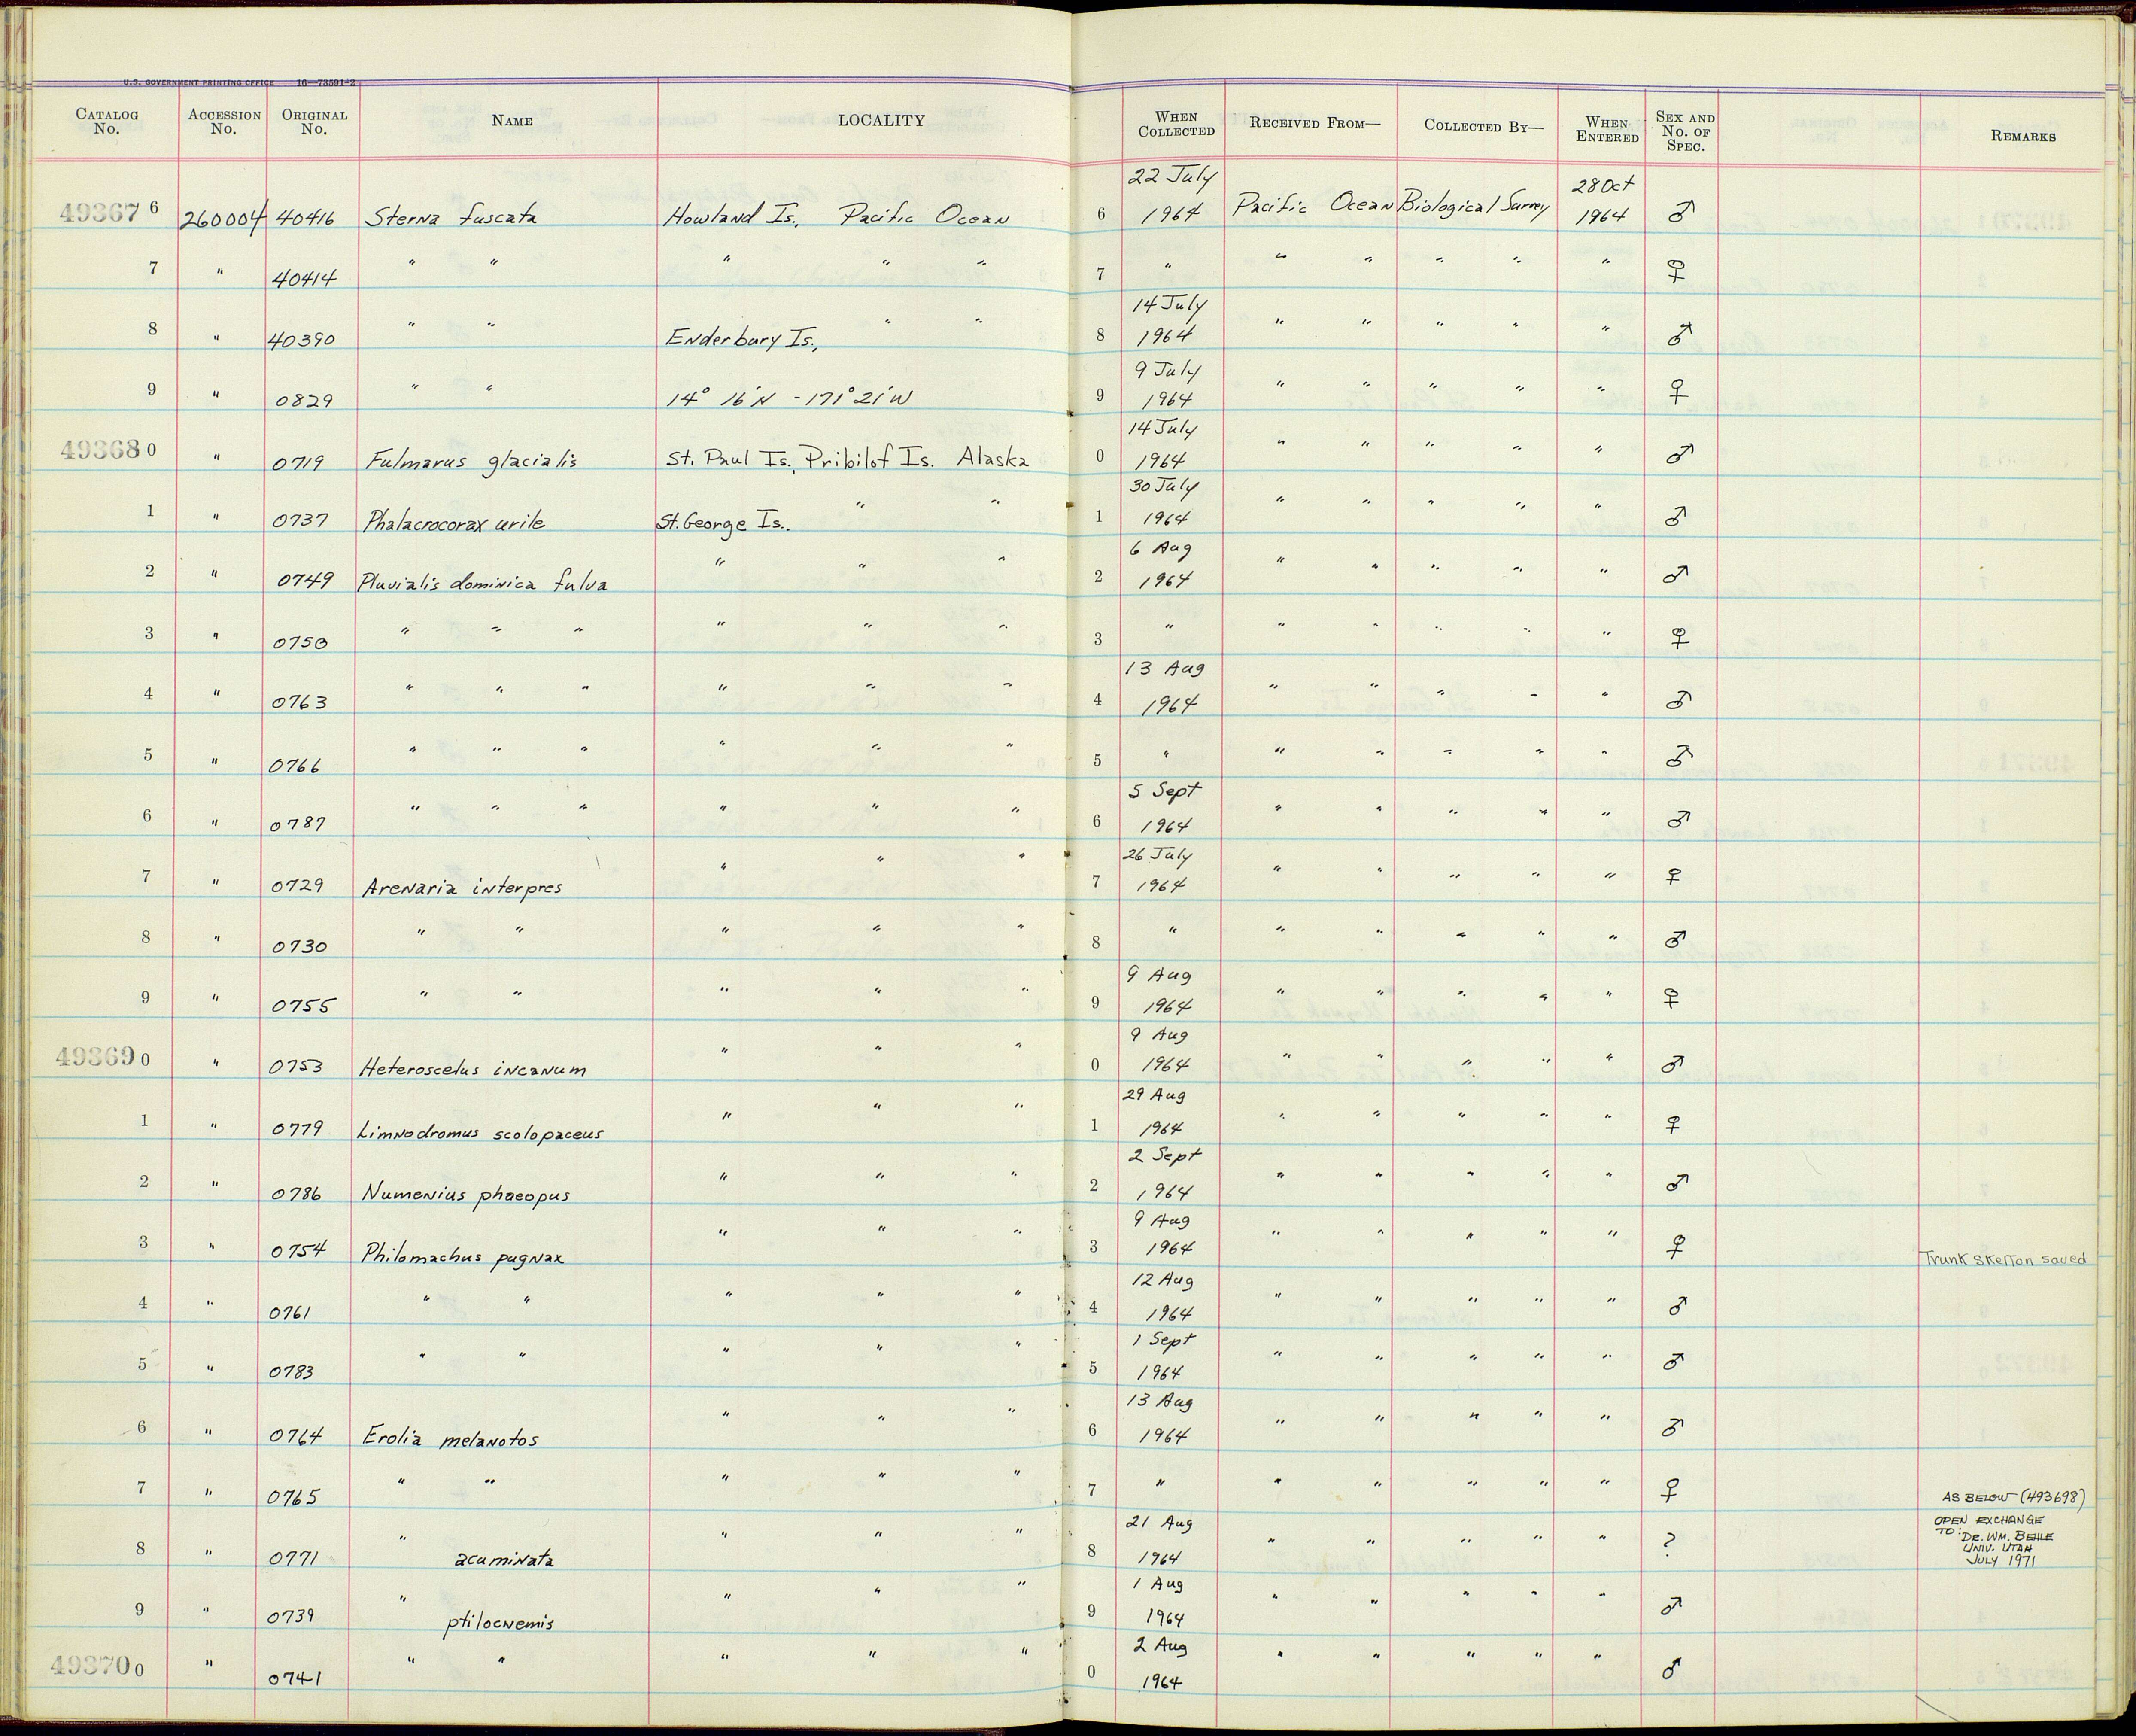 U.S. GOVERNMENT PRINTING OFFICE 16—73591-2
CATALOG No. ACCESSION No. ORIGINAL No. NAME LOCALITY WHEN COLLECTED RECEIVED FROM— COLLECTED BY— WHEN ENTERED SEX AND No. OF SPEC. REMARKS
49367 6 260004 40416 Sterna fuscata Howland Is, Pacific Ocean 6 22 July 1964 Pacific Ocean Biological Survey 28 Oct 1964 ♂
7 " 40414 " " " " " 7 " " " " " " ♀
8 " 40390 " " Enderbury Is, " " 8 14 July 1964 " " " " " ♂
9 " 0829 " " 14° 16'N - 171° 21'W 9 9 July 1964 " " " " " ♀
49368 0 " 0719 Fulmarus glacialis St. Paul Is, Pribilof Is. Alaska 0 14 July 1964 " " " " " ♂
1 " 0737 Phalacrocorax urile St. George Is. " " 1 30 July 1964 " " " " " ♂
2 " 0749 Pluvialis dominica fulva " " " 2 6 Aug 1964 " " " " " ♂
3 " 0750 " " " " " " 3 " " " " " " ♀
4 " 0763 " " " " " " 4 13 Aug 1964 " " " " " ♂
5 " 0766 " " " " " " 5 " " " " " " ♂
6 " 0787 " " " " " " 6 5 Sept 1964 " " " " " ♂
7 " 0729 Arenaria interpres " " " 7 26 July 1964 " " " " " ♀
8 " 0730 " " " " " 8 " " " " " " ♂
9 " 0755 " " " " " 9 9 Aug 1964 " " " " " ♀
49369 0 " 0753 Heteroscelus incanum " " " 0 9 Aug 1964 " " " " " ♂
1 " 0779 Limnodromus scolopaceus " " " 1 29 Aug 1964 " " " " " ♀
2 " 0786 Numenius phaeopus " " " 2 2 Sept 1964 " " " " " ♂
3 " 0754 Philomachus pugnax " " " 3 9 Aug 1964 " " " " " ♀ Trunk skelton saved
4 " 0761 " " " " " 4 12 Aug 1964 " " " " " ♂
5 " 0783 " " " " " 5 1 Sept 1964 " " " " " ♂
6 " 0764 Erolia melanotos " " " 6 13 Aug 1964 " " " " " ♂
7 " 0765 " " " " " 7 " " " " " " ♀ AS BELOW (493698)
8 " 0771 " acuminata " " " 8 21 Aug 1964 " " " " " ? OPEN EXCHANGE TO: DR. WM. BEHLE UNIV. UTAH JULY 1971
9 " 0739 " ptilocnemis " " " 9 1 Aug 1964 " " " " " ♂
49370 0 " 0741 " " " " " 0 2 Aug 1964 " " " " " ♂